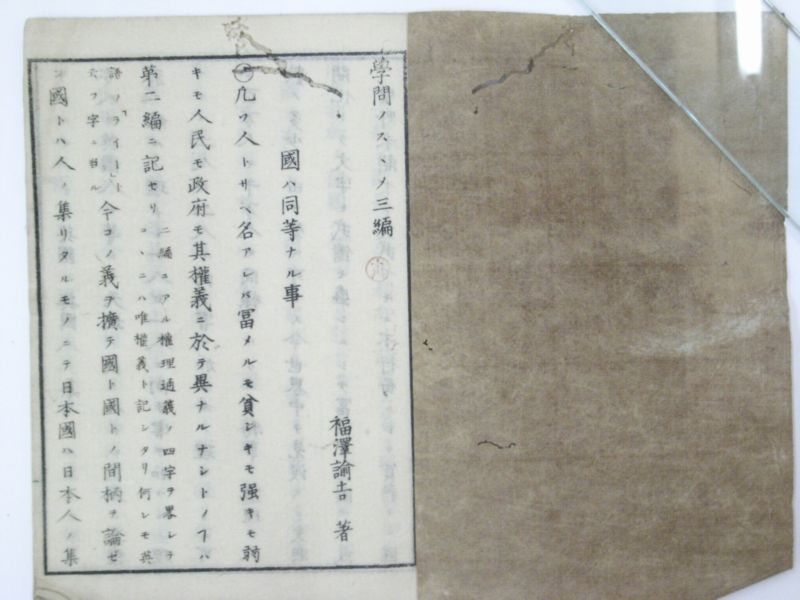 學問ノスヽメ三編
福澤諭𠮷 著
國ハ同等ナル事
凢ソ人トサヘ名アレバ冨メルモ貧シキモ强キモ弱
キモ人民モ政府モ其權義ニ於テ異ナルナシトノヿハ
第二編ニ記セリ
二編ニアル權理通義ノ四字ヲ畧シテ
コヽニハ唯權義ト記シタリ何レモ英
語ノ「ライート」ト
云フ字ニ當ル
今コノ義ヲ擴テ國ト國トノ間柄ヲ論ゼ
ン國トハ人ノ集リタルモノニテ日本國ハ日本人ノ集